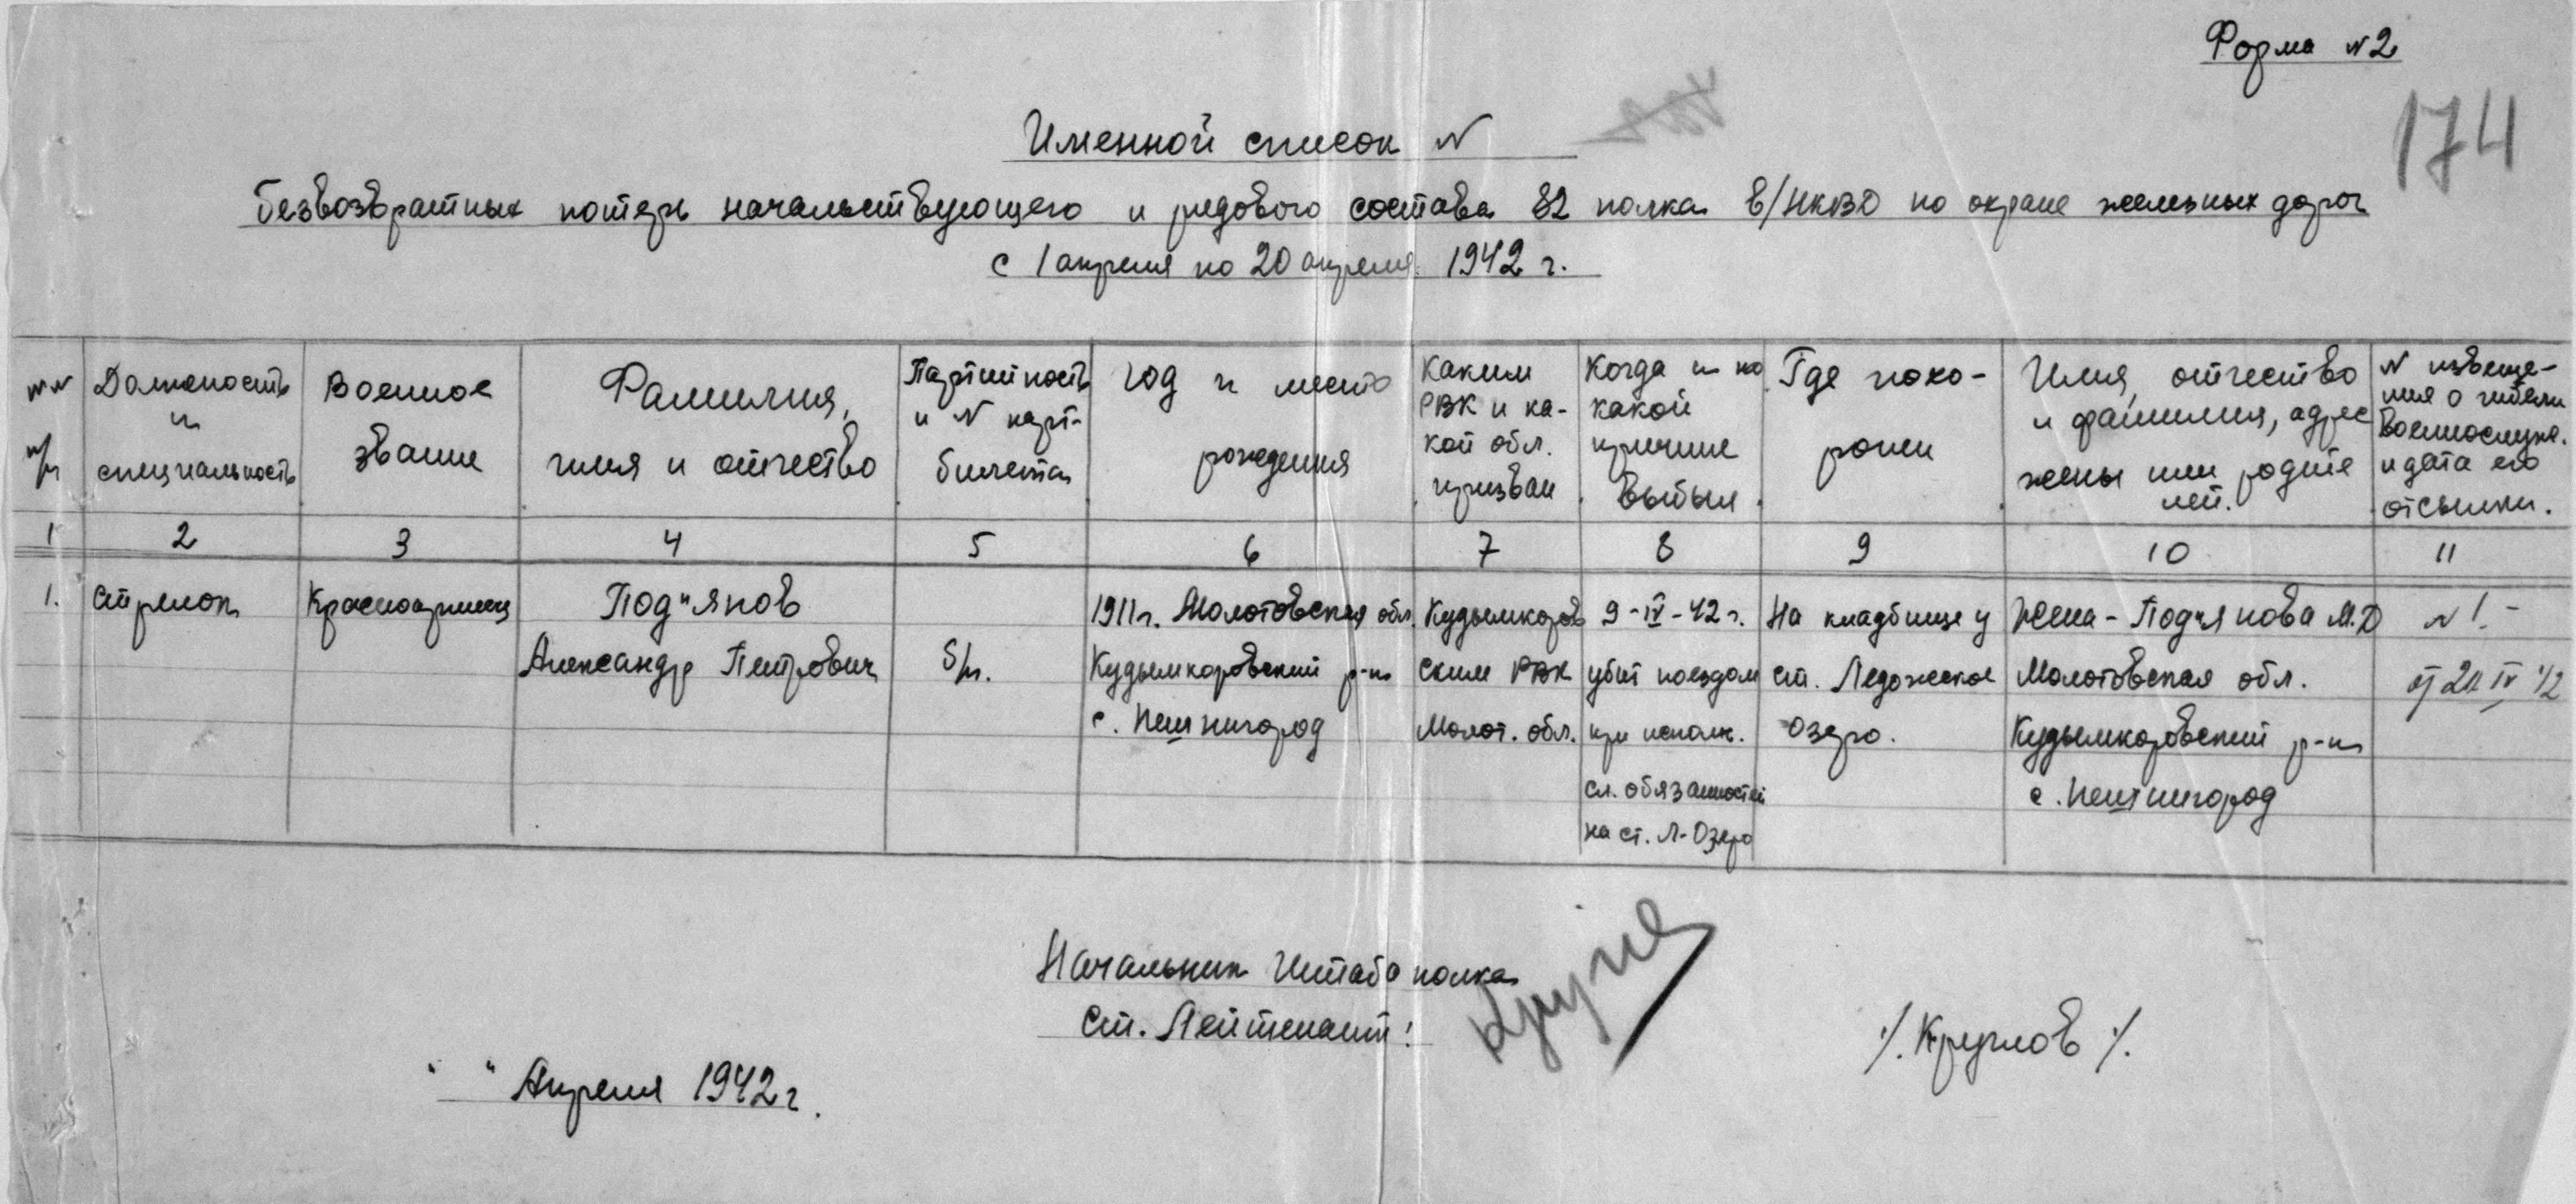 Форма №2
174
Именной список №
безвозвратных потерь начальствующего и рядового состава 82 полка в/НКВД по охране железных дорог
с 1 апреля по 20 апреля 1942 г.
№№ п/п
Должность и специальность
Военное звание
Фамилия, имя и отчество
Партийность и № парт-билета
Год и место рождения
Каким РВК и ка-кой обл. призван
Когда и по какой причине выбыл
Где похо-ронен
Имя, отчество и фамилия, адрес жены или родите лей.
№ извеще-ния о гибели военнослуж. и дата его отсылки.
1 2 3 4 5 6 7 8 9 10 11
1. Стрелок Красноармеец Под"янов 1911г. Молотовская обл. Кудымкоров 9-IV-42 г. На кладбище у Жена - Под"янова М.Д №1-
Александр Петрович б/п. Кудымкоровский р-н ским РВК убит поездом ст. Ладожское Молотовская обл.
с. Пешнигород Молот. обл. при исполн. Озеро. Кудымкоровский р-н
сл. обязанностей с. Пешнигород
на ст. Л-Озеро
Начальник Штаба полка
Ст. Лейтенант:
/. Круглов /.
" " Апреля 1942 г.